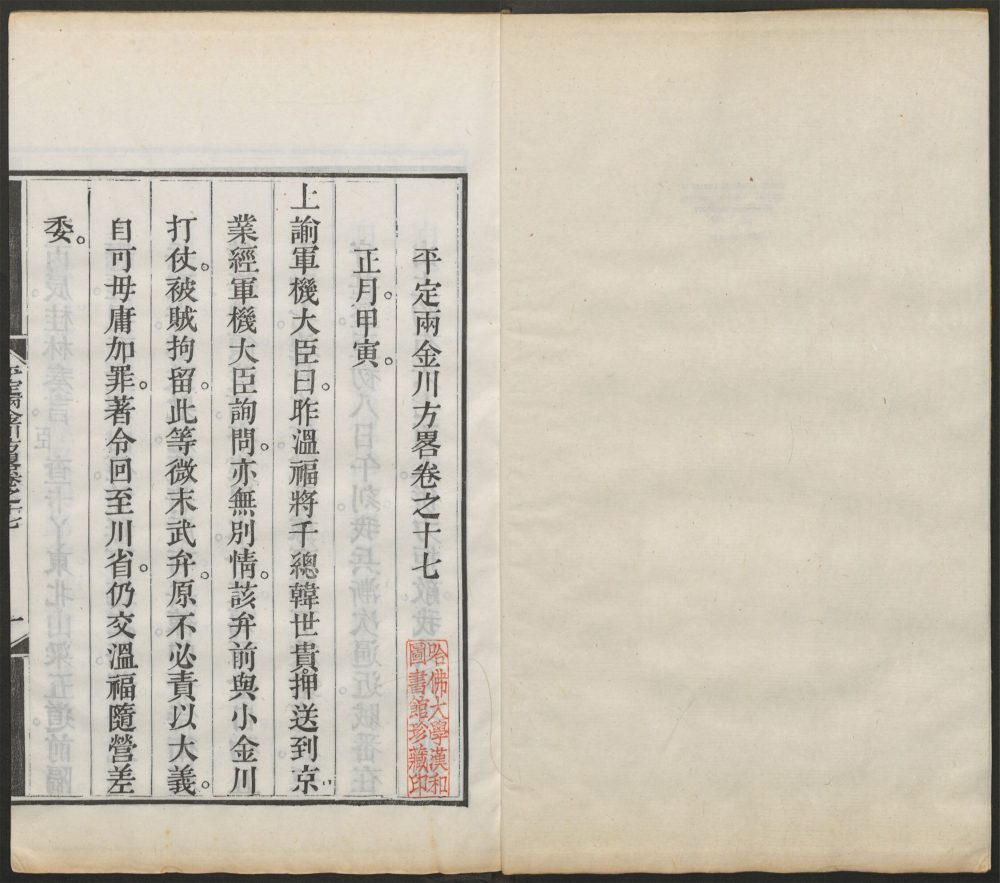 平定兩金川方畧卷之十七
哈佛大學漢和
圖書館珍藏印
正月。甲寅。
上諭軍機大臣曰。昨溫福將千總韓世貴。押送到京。
業經軍機大臣詢問。亦無別情。該弁前與小金川
打仗。被賊拘留。此等微末武弁。原不必責以大義。
自可毋庸加罪。著令回至川省。仍交溫福隨營差
委。
平定兩金川方畧卷之十七
一